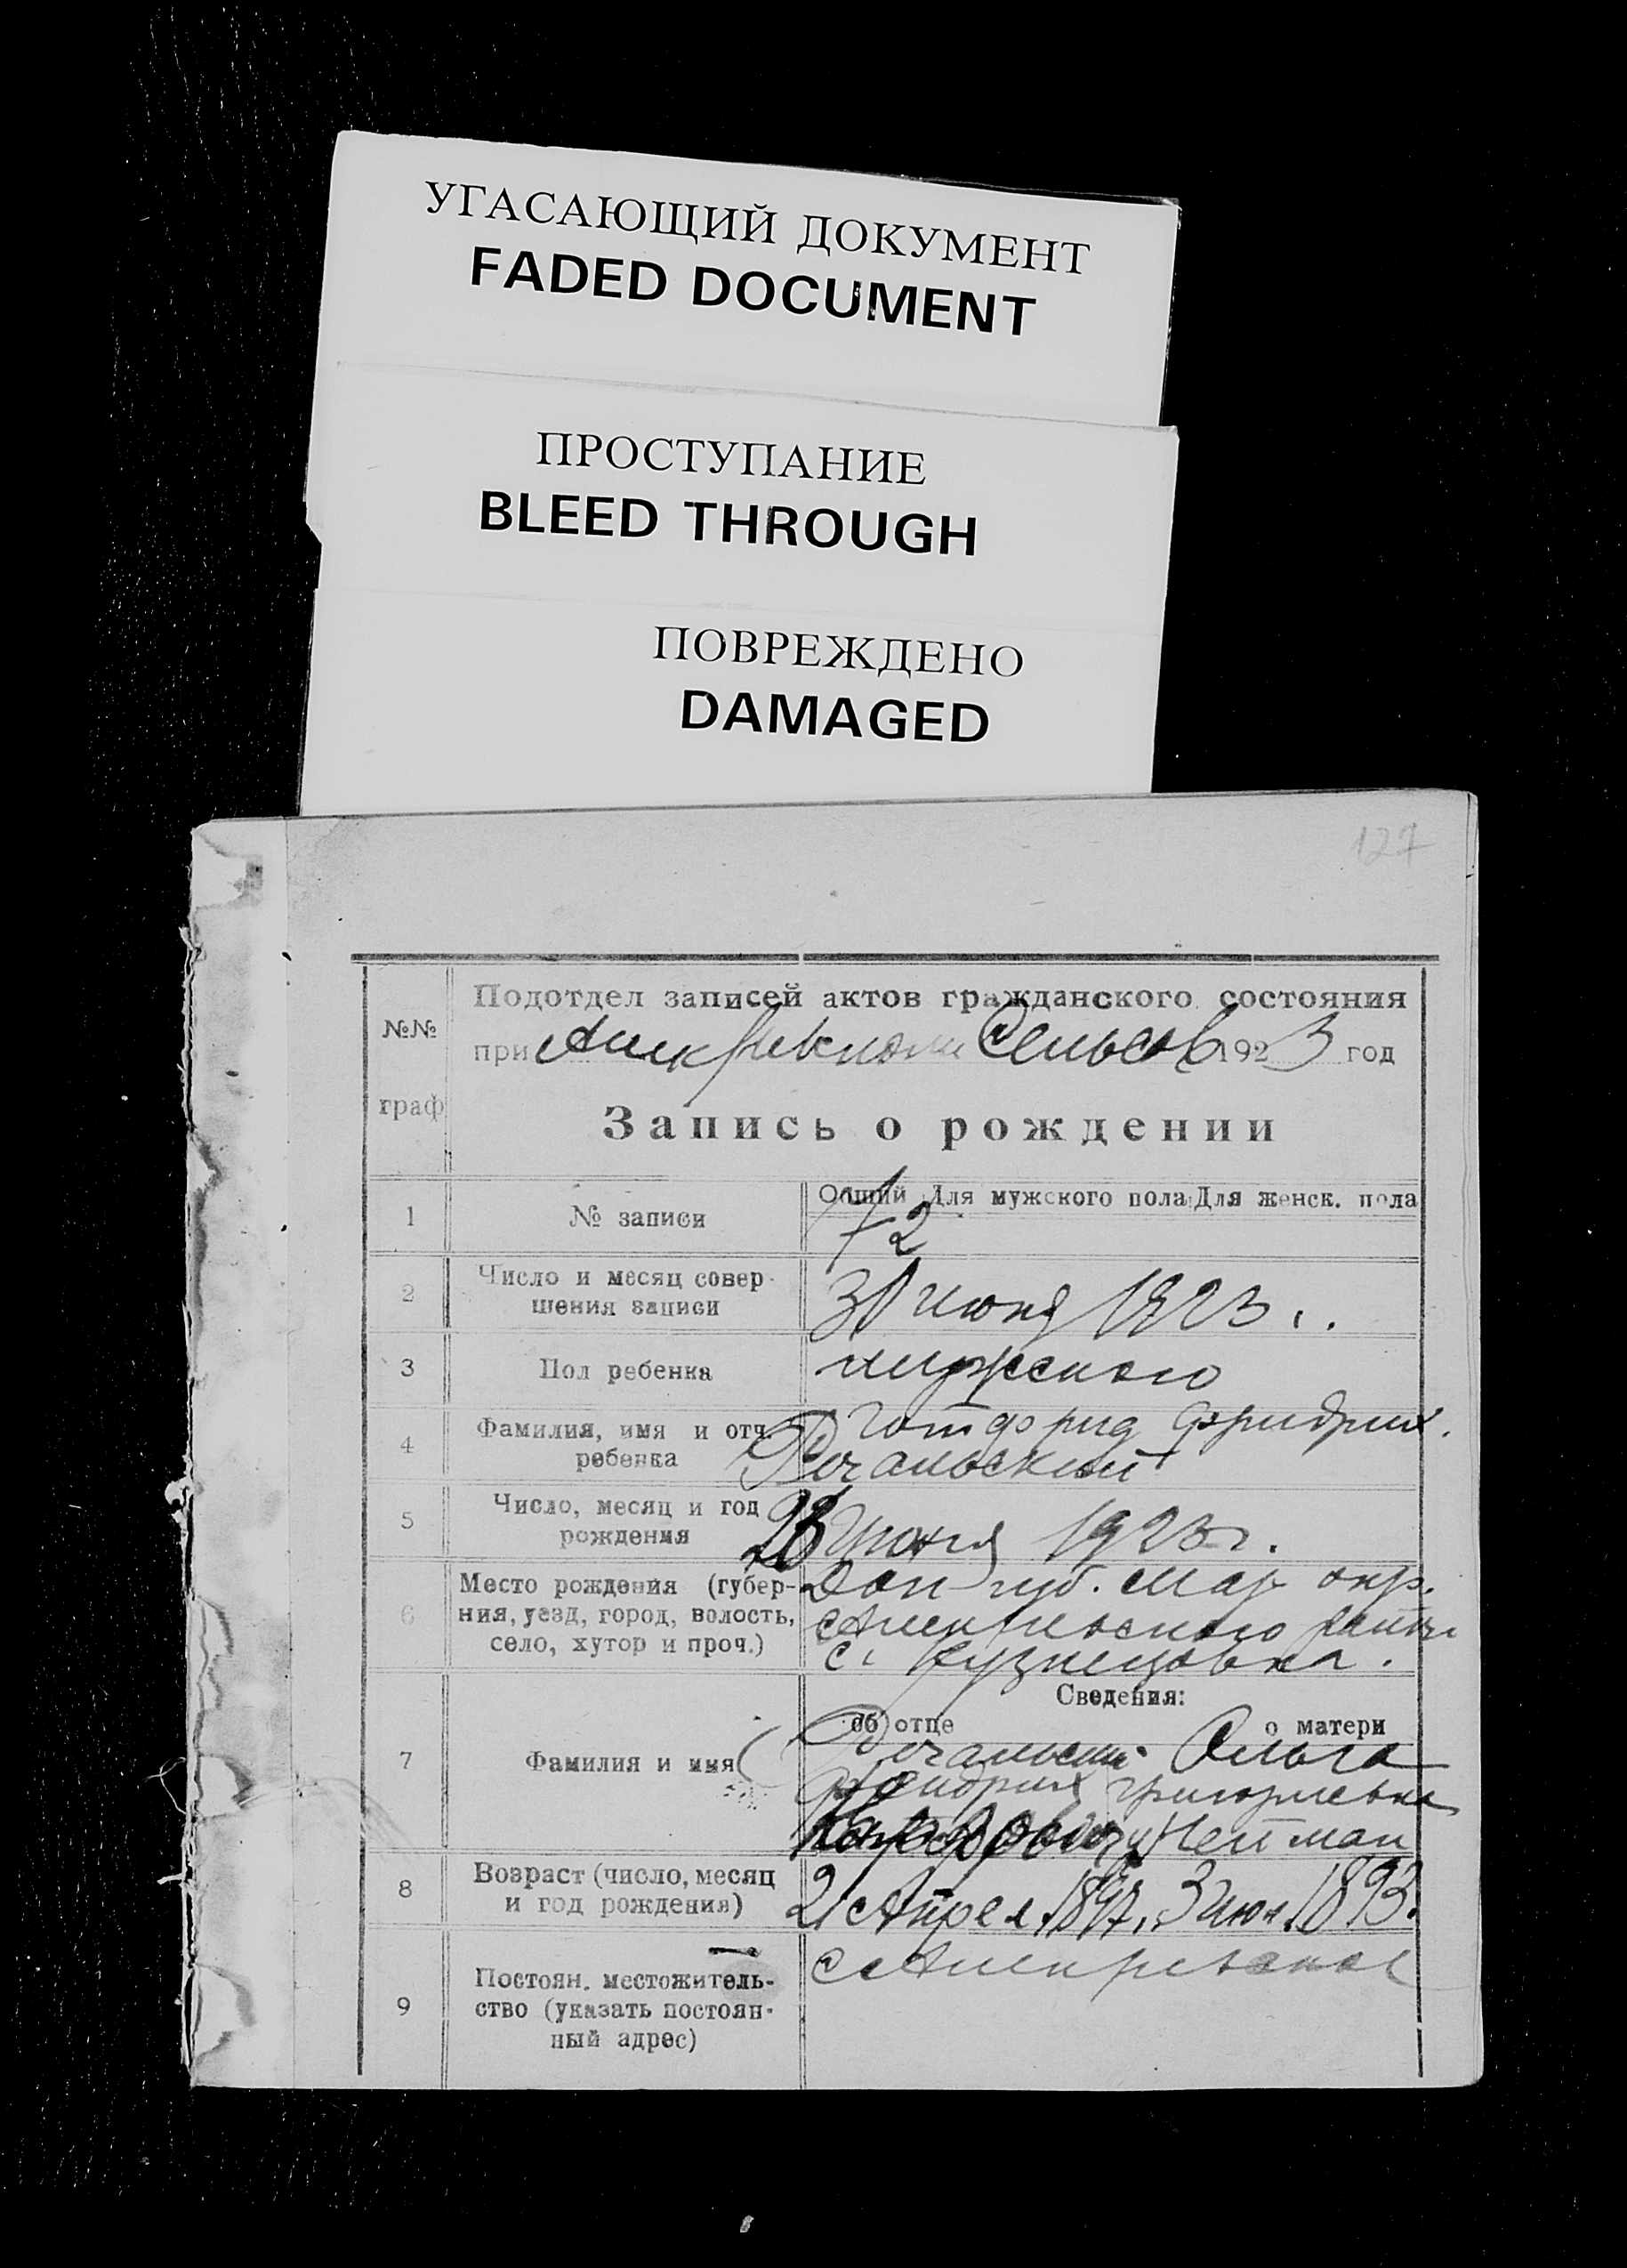 УГАСАЮЩИЙ ДОКУМЕНТ
FADED DOCUMENT
ПРОСТУПАНИЕ
BLEED THROUGH
ПОВРЕЖДЕНО
DAMAGED
127
№№
граф
Подотдел записей актов гражданского состояния
при Сельсов 1923 год
Запись о рождении
1
№ записи
Общий Для мужского пола Для женск. пола
72
2
Число и месяц совер-
шения записи
июня 1923
3
Пол ребенка
мужского
4
Фамилия, имя и отч.
ребенка
Готфрид Фридрих.
5
Число, месяц и год
рождения
Июня 1923 г.
6
Место рождения (губер-
ния, уезд, город, волость,
село, хутор и проч.)
Дон губ. Мар окр.
с. Кузнецовка.
Сведения:
об отце
о матери
7
Фамилия и имя
Ольга
Фридрих Григориевна
Нейман
8
Возраст (число, месяц
и год рождения)
2 Апрел. 1897. 3 июн. 1893.
9
Постоян. местожитель-
ство (указать постоян-
ный адрес)